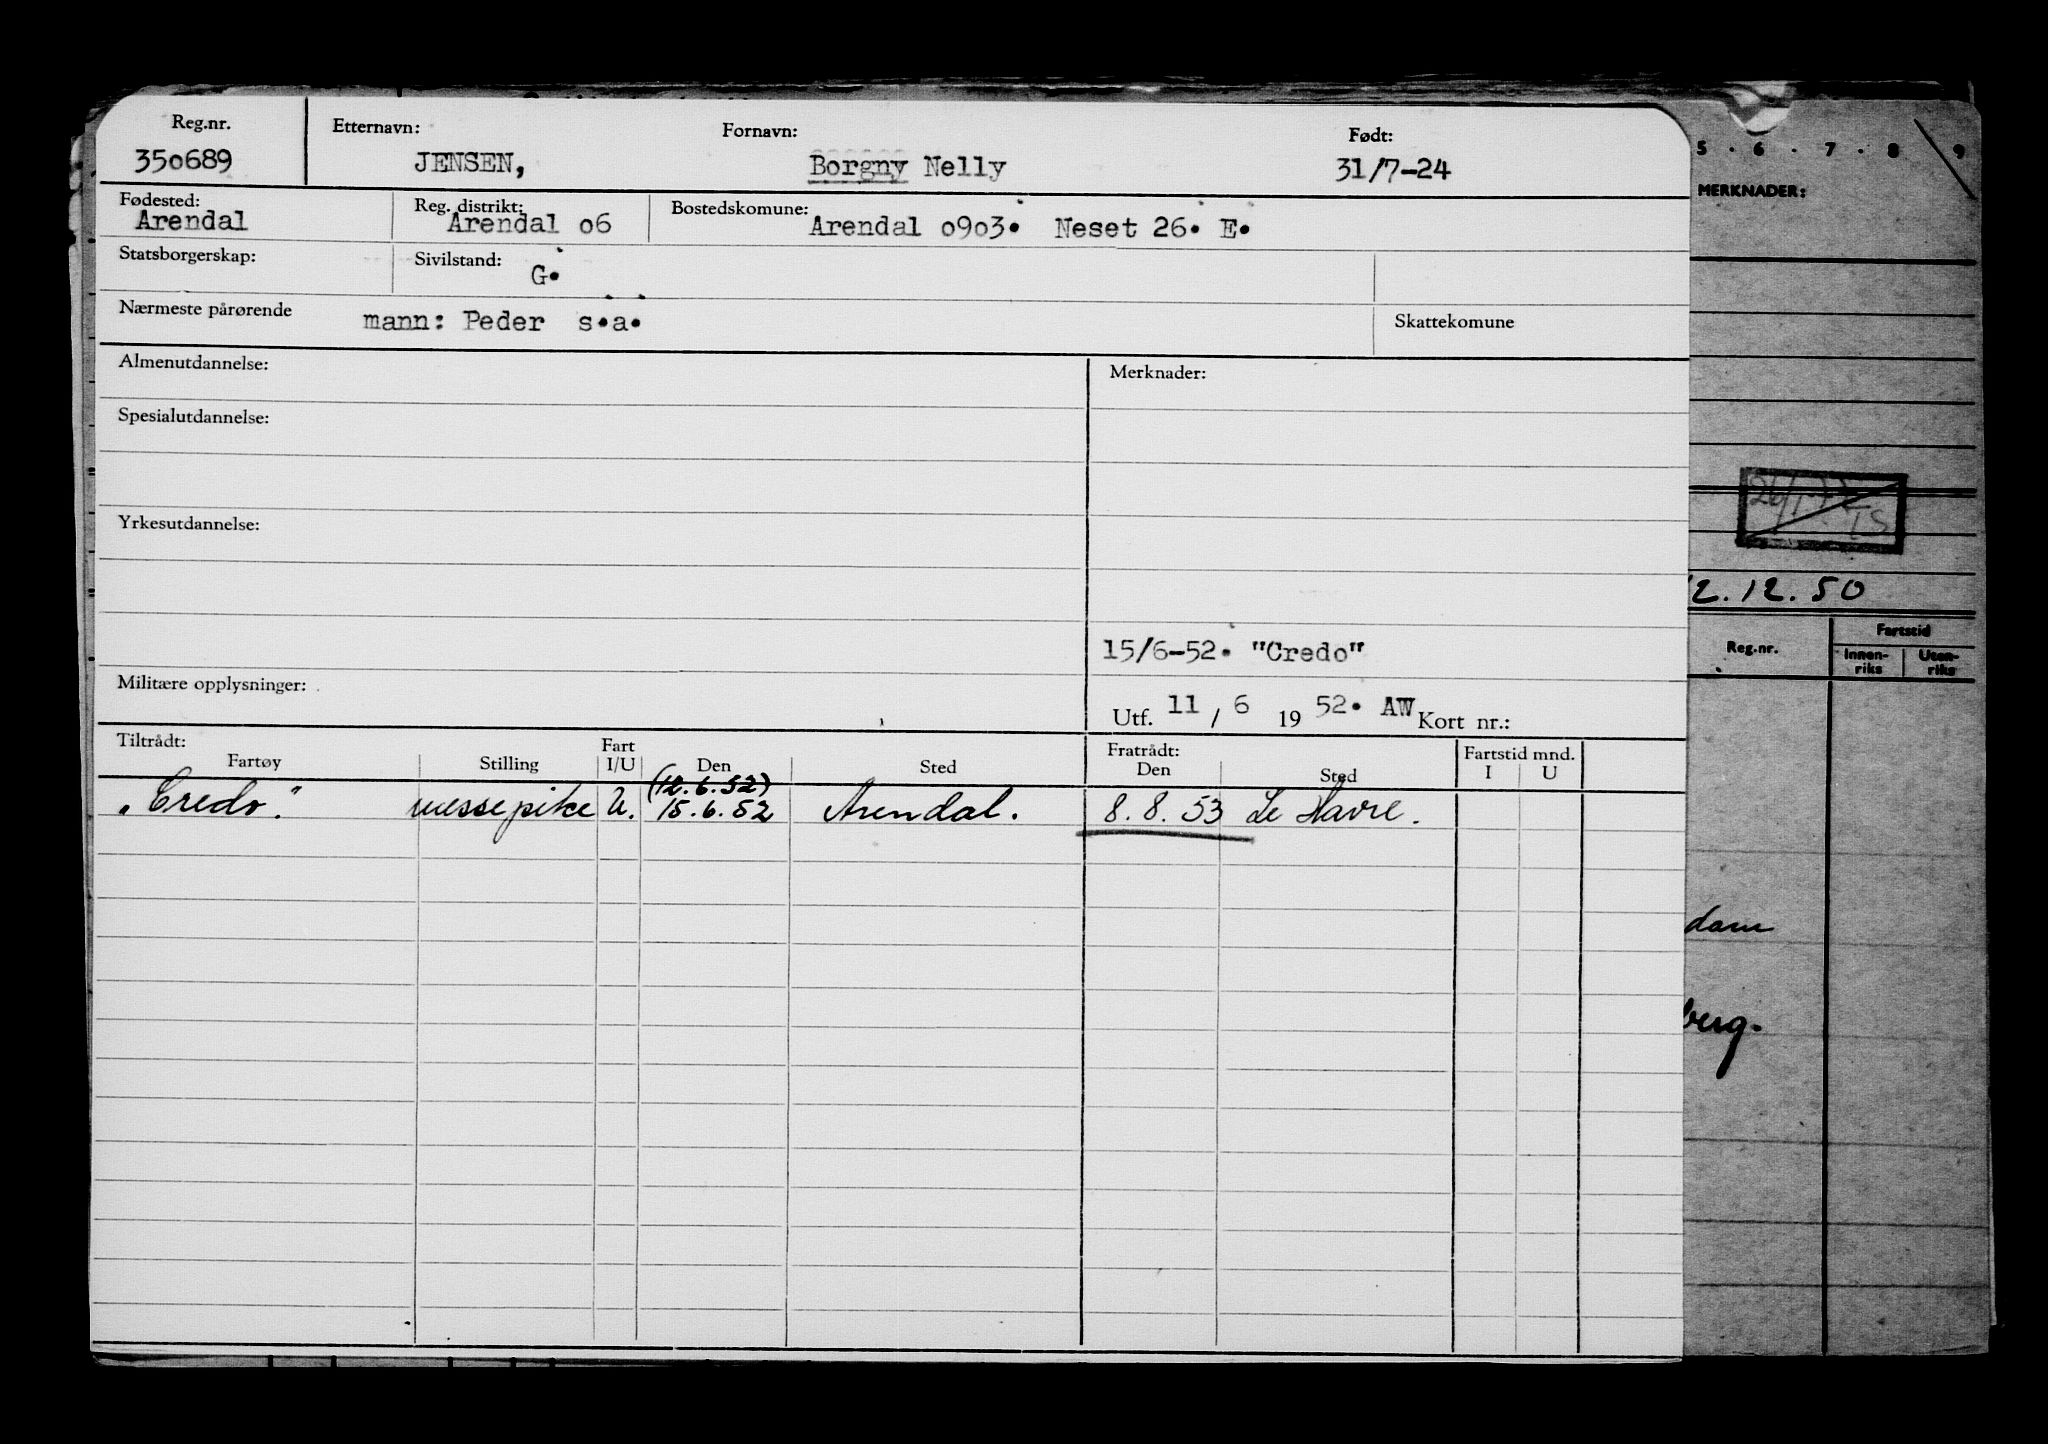 Reg.nr. Etternavn: Fornavn: Født:
350689 JENSEN, Borgny Nelly 31/7-24
Fødested: Reg. distrikt: Bostedskomune:
Arendal Arendal 06 Arendal 0903. Neset 26. E.
Statsborgerskap: Sivilstand: G.
Nærmeste pårørende mann: Peder s.a. Skattekomune
Almenutdannelse: Merknader:
Spesialutdannelse:
Yrkesutdannelse:
15/6-52. "Credo"
Militære opplysninger:
Utf. 11 / 6 19 52. AW Kort nr.:
Tiltrådt: Fratrådt:
Fartøy Stilling Fart I/U Den Sted Den Sted Fartstid mnd. I U
(12.6.52)
"Credo." messepike U. 15.6.52 Arendal. 8.8.53 Le Havre.
5 . 6 . 7 . 8 9
MERKNADER:
2.12.50
Reg.nr. Fartstid
Innen-riks Uten-riks
dam
berg.